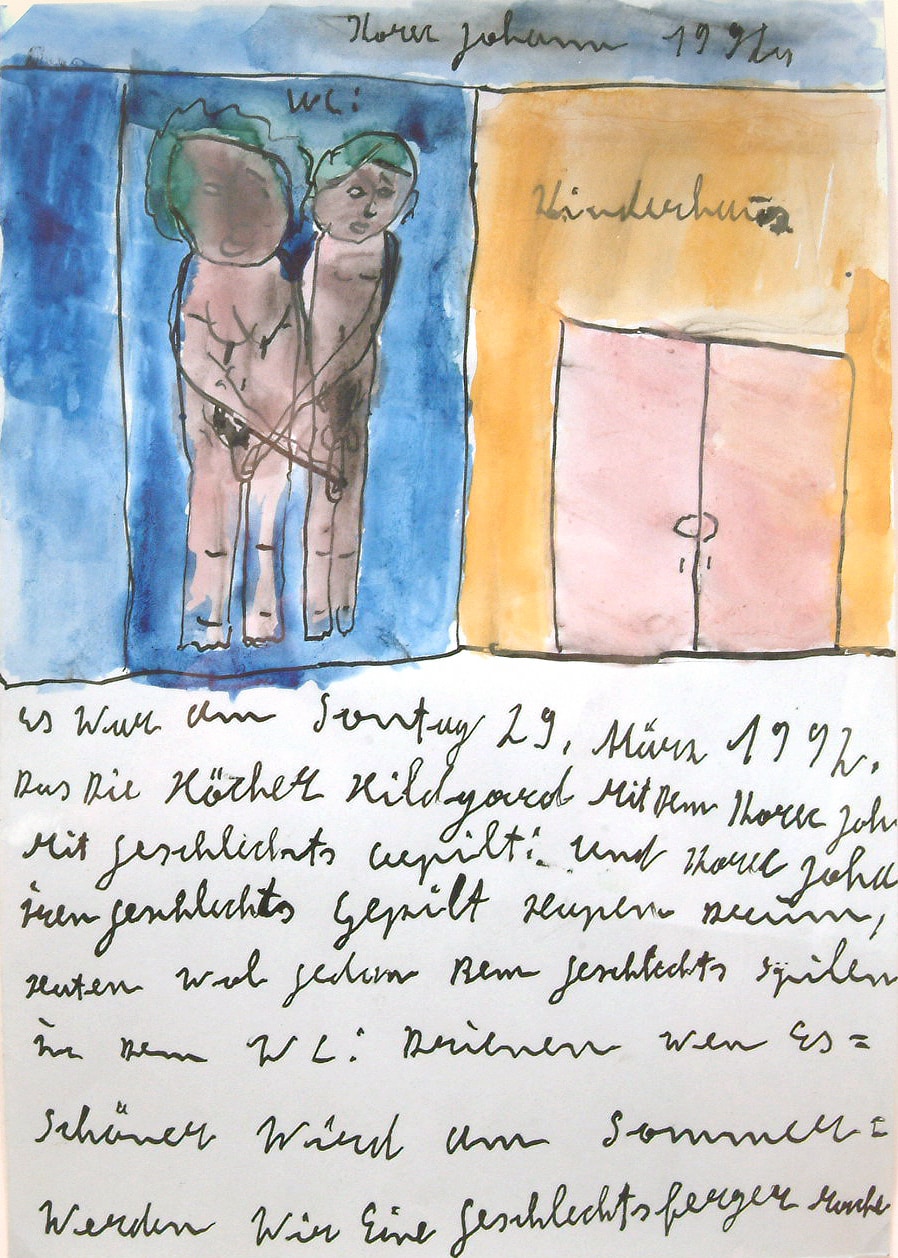 Korec Johann 1992
WC:
Kinderhaus
Es War am Sontag 29, März 1992.
Das Die Höcher Hildgard Mit Dem Korec Joh
Mit geschlechts gepilt: und Korec Joha
iren geschlechts Gepilt Hupen Drüm,
Haten wol gedan Dem geschlechts spilen
in Dem WC: Drienen wen Es=
Schöner Wird am Sommer:=
Werden Wir Eine geschlechtsferger Mache